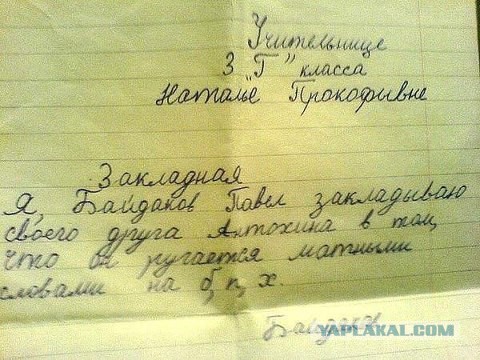 Учительнице
3 "Г" класса
Наталье Прокофивне
Закладная
Я, Байдаков Павел закладываю
своего друга Антохина в том,
что он ругается матными
словами на б, п, х.
Байдаков
YAPLAKAL.COM